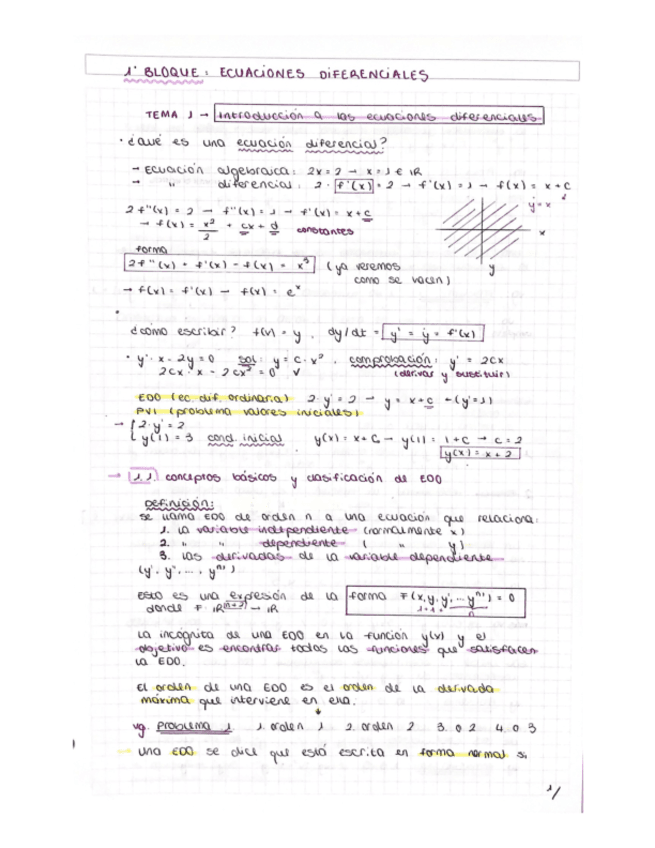 1º BLOQUE: ECUACIONES DIFERENCIALES
TEMA 1 → Introducción a las ecuaciones diferenciales
· ¿Qué es una ecuación diferencial?
→ Ecuación algebraica: 2x = 2 → x = 1 ∈ ℝ
→ " diferencial: 2 · f'(x) = 2 → f'(x) = 1 → f(x) = x + c
2f''(x) = 2 → f''(x) = 1 → f'(x) = x + c
y = x
→ f(x) = x²/2 + cx + d constantes
x
forma
2f''(x) + f'(x) - f(x) = x³ (ya veremos
y
como se hacen)
→ f(x) = f'(x) → f(x) = eˣ
·
¿cómo escribir? f(x) = y, dy/dt = y' = ẏ = f'(x)
· y' · x - 2y = 0 sol: y = c · x², comprobación: y' = 2cx
2cx · x - 2cx² = 0 ✓ (derivar y sustituir)
EDO (ec. dif. ordinaria) 2 · y' = 2 → y = x + c → (y' = 1)
PVI (problema valores iniciales)
→ { 2 · y' = 2
y(1) = 3 cond. inicial y(x) = x + c → y(1) = 1 + c → c = 2
y(x) = x + 2
→ 1.1. conceptos básicos y clasificación de EDO
Definición:
se llama EDO de orden n a una ecuación que relaciona:
1. la variable independiente (normalmente x)
2. " " dependiente ( " y)
3. las derivadas de la variable dependiente
(y', y'', ..., yⁿ⁾)
Esto es una expresión de la forma F(x, y, y', ... yⁿ⁾) = 0
donde F: ℝ⁽ⁿ⁺²⁾ → ℝ 1+1+ n
La incógnita de una EDO en la función y(x) y el
objetivo es encontrar todas las funciones que satisfacen
la EDO.
El orden de una EDO es el orden de la derivada
máxima que interviene en ella.
vg. Problema 1 1. orden 1 2. orden 2 3. o 2 4. o 3
una EDO se dice que está escrita en forma normal si
1/